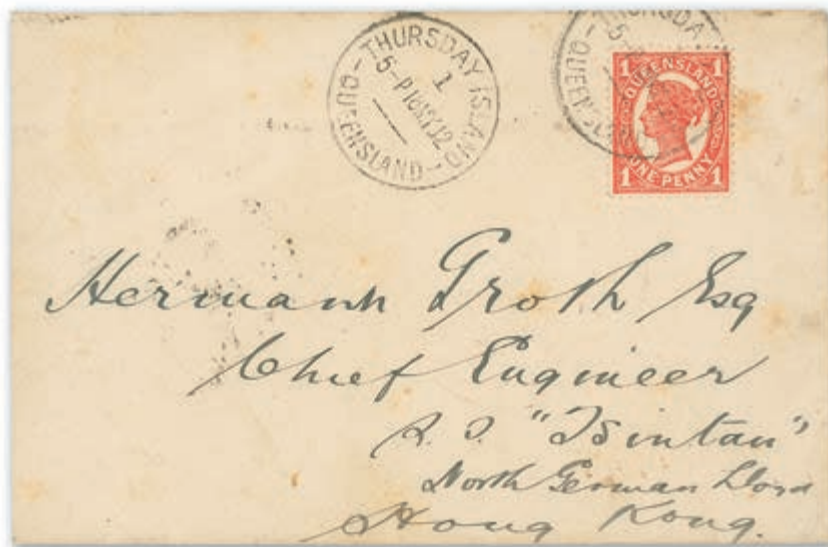 THURSDAY ISLAND
1
5-P 18SE12
QUEENSLAND
THURSDA
5
QUEENSL
1 QUEENSLAND 1
1 ONE PENNY 1
Hermann Groth Esq
Chief Engineer
S. S. "Tsintau"
North German Lloyd
Hong Kong.